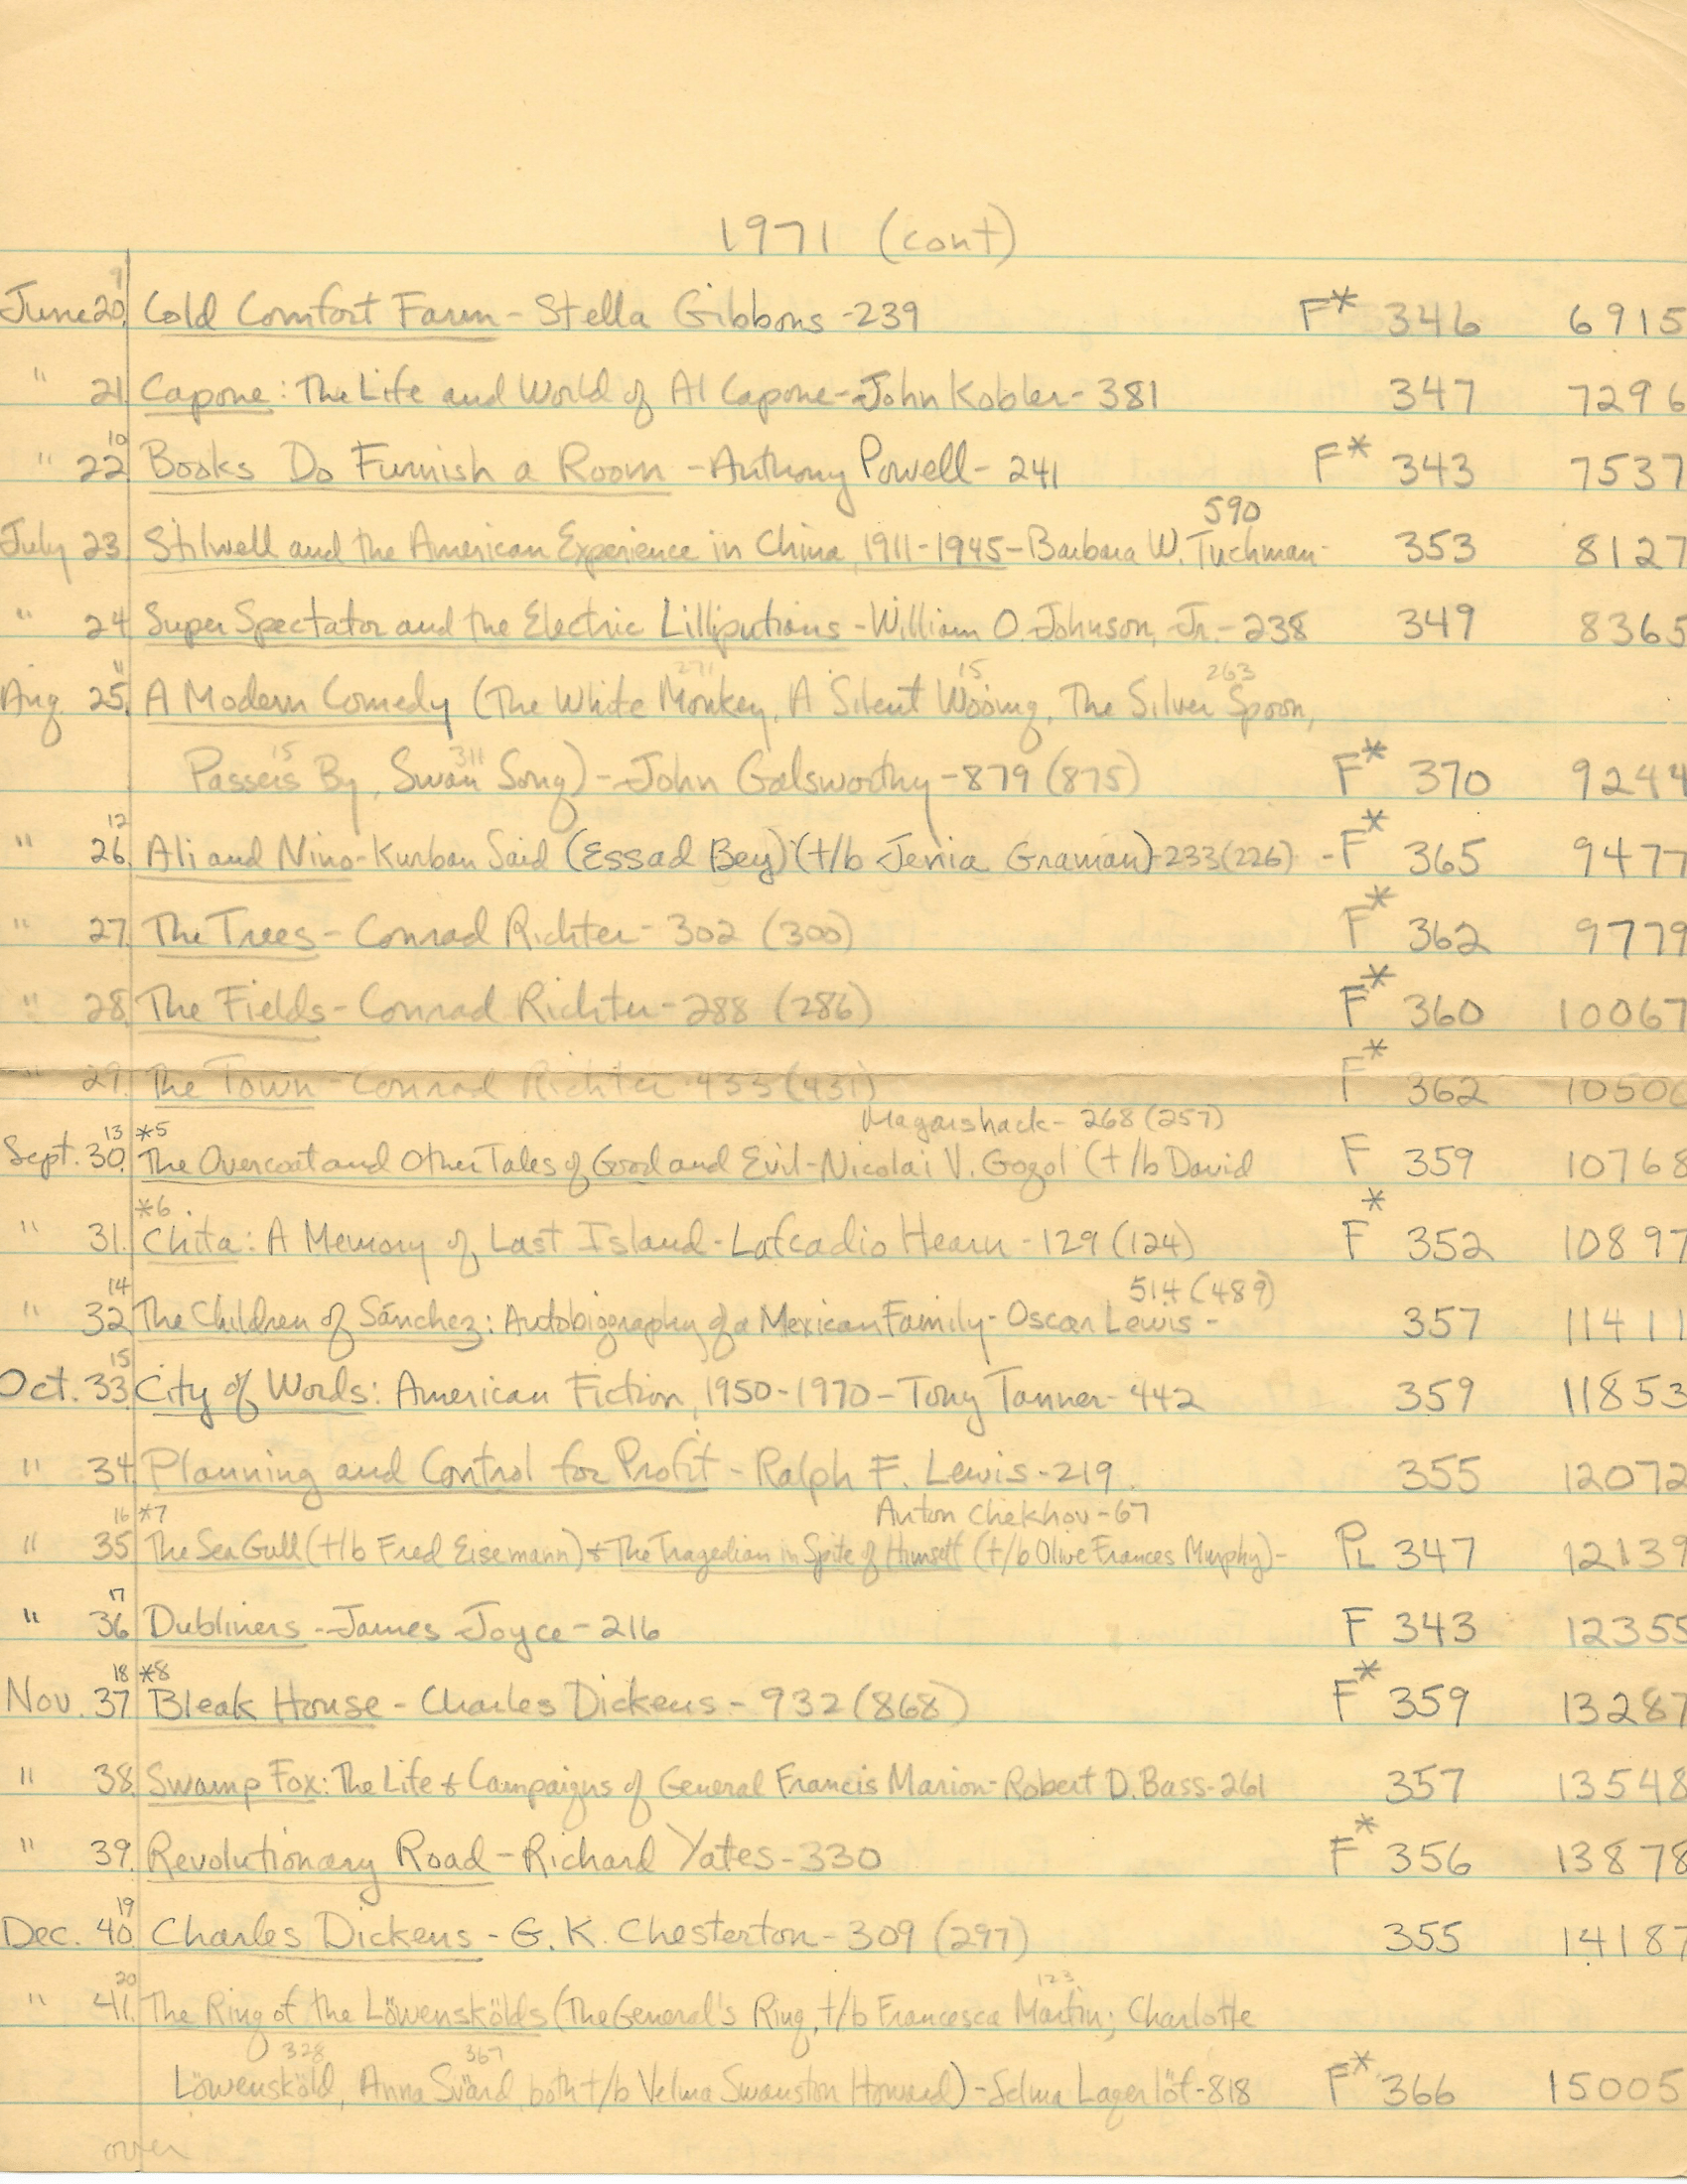 1971 (cont)
9
June 20. Cold Comfort Farm - Stella Gibbons - 239 F* 346 6915
" 21. Capone: The Life and World of Al Capone - John Kobler - 381 347 7296
10
" 22. Books Do Furnish a Room - Anthony Powell - 241 F* 343 7537
590
July 23. Stilwell and the American Experience in China, 1911-1945 - Barbara W. Tuchman - 353 8127
" 24. Super Spectator and the Electric Lilliputians - William O. Johnson, Jr. - 238 349 8365
11 271 15 263
Aug. 25. A Modern Comedy (The White Monkey, A Silent Wooing, The Silver Spoon,
15 311
Passers By, Swan Song) - John Galsworthy - 879 (875) F* 370 9244
12
" 26. Ali and Nino - Kurban Said (Essad Bey) (t/b Jenia Graman) - 233 (226) - F* 365 9477
" 27. The Trees - Conrad Richter - 302 (300) F* 362 9779
" 28. The Fields - Conrad Richter - 288 (286) F* 360 10067
" 29. The Town - Conrad Richter - 433 (431) F* 362 10500
Magarshack - 268 (257)
13 *5
Sept. 30. The Overcoat and Other Tales of Good and Evil - Nicolai V. Gogol (t/b David F 359 10768
*6
" 31. Chita: A Memory of Last Island - Lafcadio Hearn - 129 (124) F* 352 10897
14 514 (489)
" 32. The Children of Sánchez: Autobiography of a Mexican Family - Oscar Lewis - 357 11411
15
Oct. 33. City of Words: American Fiction, 1950-1970 - Tony Tanner - 442 359 11853
" 34. Planning and Control for Profit - Ralph F. Lewis - 219 355 12072
16 *7 Anton Chekhov - 67
" 35. The Sea Gull (t/b Fred Eisemann) & The Tragedian in Spite of Himself (t/b Olive Frances Murphy) - PL 347 12139
17
" 36. Dubliners - James Joyce - 216 F 343 12355
18 *8
Nov. 37. Bleak House - Charles Dickens - 932 (868) F* 359 13287
" 38. Swamp Fox: The Life & Campaigns of General Francis Marion - Robert D. Bass - 261 357 13548
" 39. Revolutionary Road - Richard Yates - 330 F* 356 13878
19
Dec. 40. Charles Dickens - G. K. Chesterton - 309 (297) 355 14187
20 123
" 41. The Ring of the Löwenskölds (The General's Ring, t/b Francesca Martin; Charlotte
328 367
Löwensköld, Anna Svärd, both t/b Velma Swanston Howard) - Selma Lagerlöf - 818 F* 366 15005
over